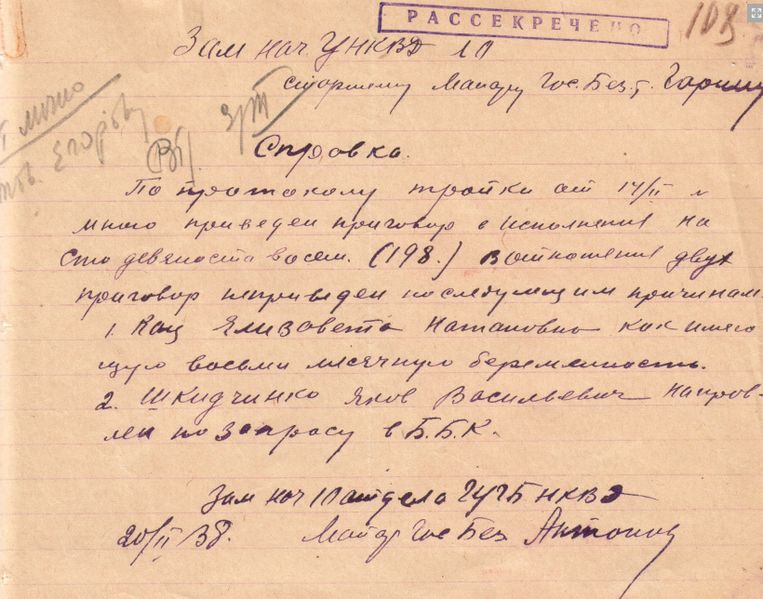 РАССЕКРЕЧЕНО
103
Зам нач УНКВД ЛО
старшему Майору Гос.Без.т. Гарину
тов. Егорову
Справка.
По протокому тройки от 14/II м
мною приведен приговор в исполнения на
сто девяноста восем. (198.) В отношения двух
приговор неприведен последующим причинам.
1. Кац Елизовета Натановно как имею
щую восьми месячную беременность.
2. Шкидчинко Яков Васильевич напров-
лен по запросу в Б.Б.К.
Зам нач 10 отдела ГУГБ НКВД
20/II 38. Майор Гос Без